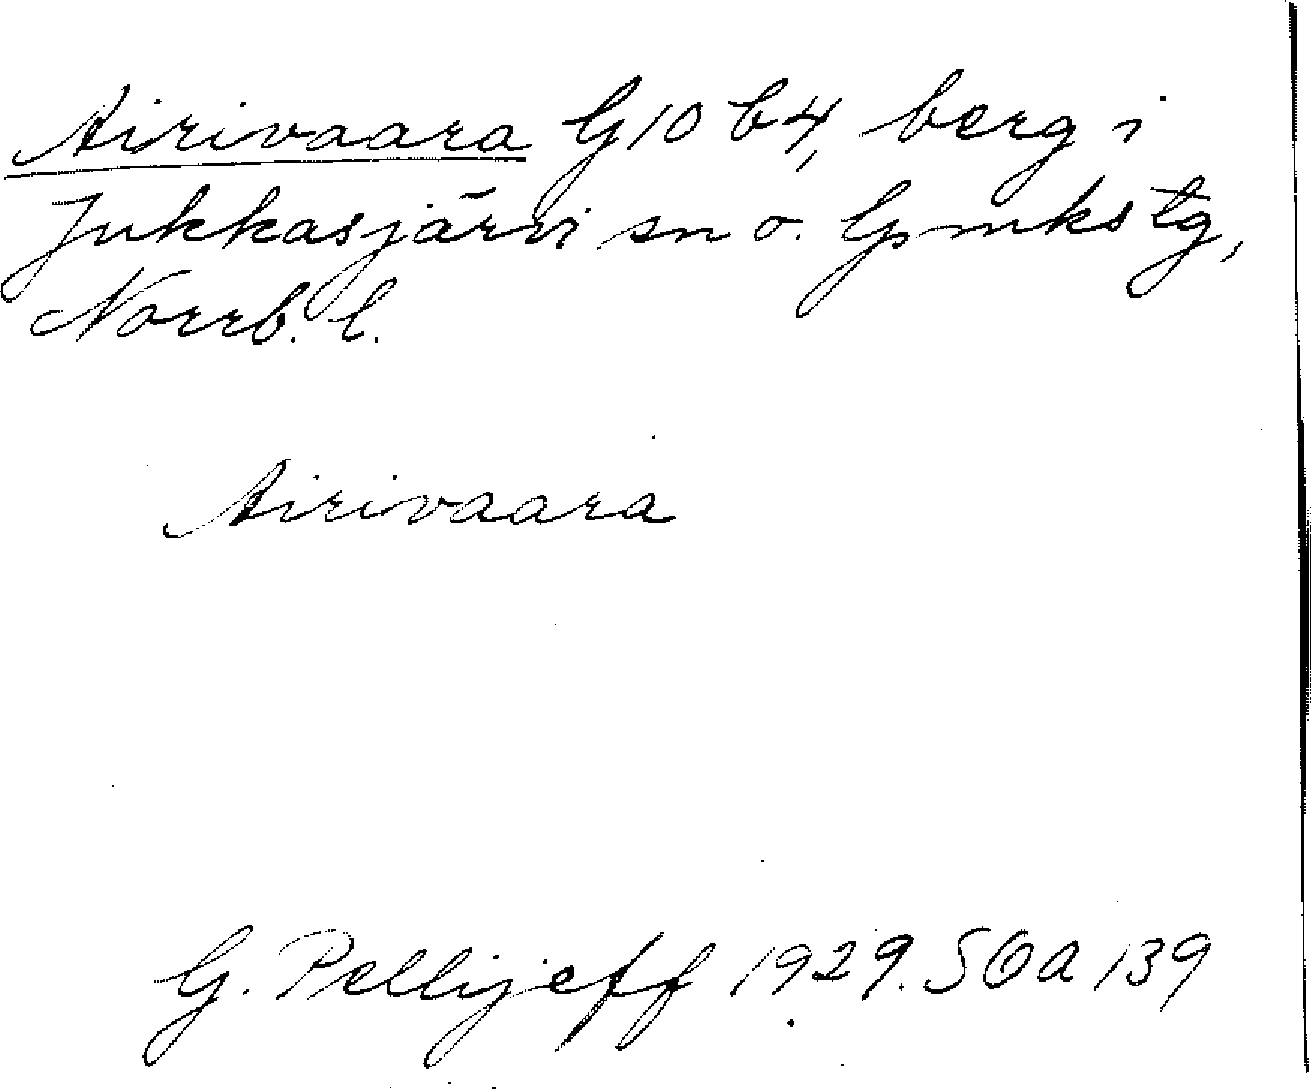 Airivaara G10 b4, berg i
Jukkasjärvi sn o. Gmkstg,
Norrb. l.
Airivaara
G. Pellijeff 1929. SOA 139